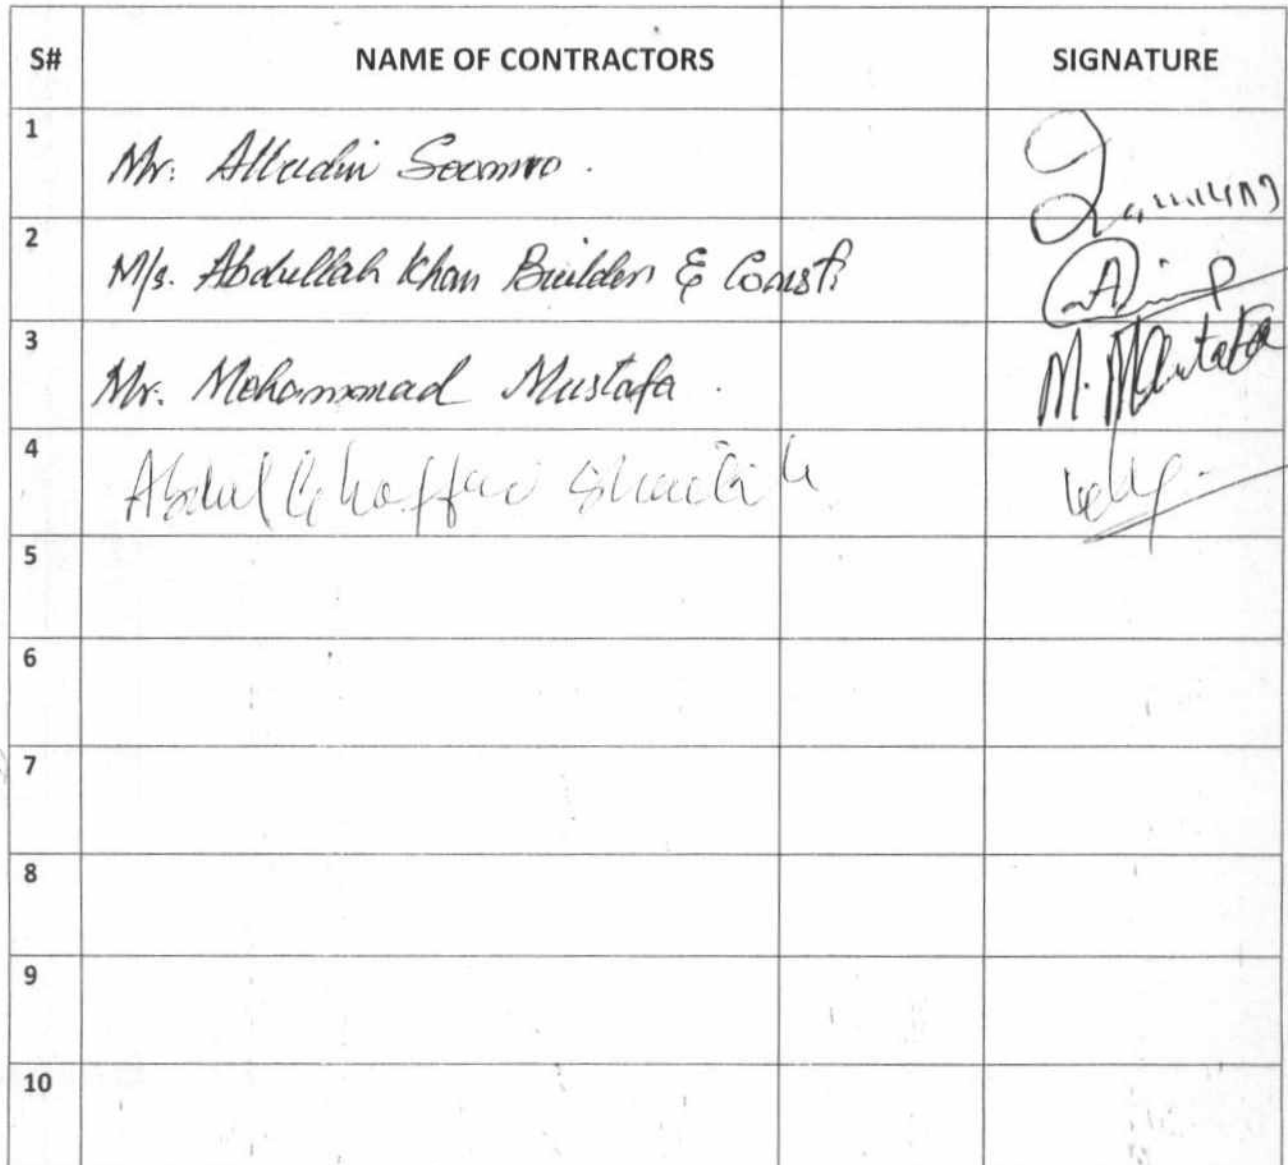 S# NAME OF CONTRACTORS SIGNATURE
1 Mr. Allahdin Soomro.
2 M/s. Abdullah Khan Builders & Const:
3 Mr. Mohammad Mustafa. M. Mustafa
4 Abdul Ghaffar Shaikh
5
6
7
8
9
10